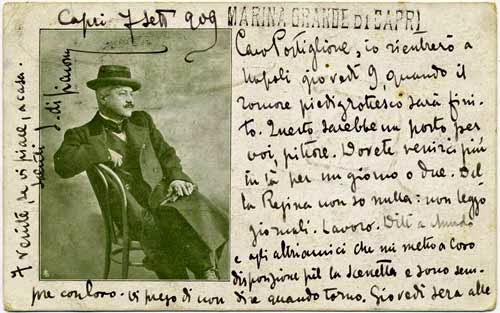 Capri 7 Sett 909
MARINA GRANDE DI CAPRI
Caro Postiglione, io rientrerò a
Napoli giovedì 9, quando il
romore piedigrottesco sarà fini-
to. Questo sarebbe un posto, per
voi, pittore. Dovete venirci più
in là per un giorno o due. Del-
la Regina non so nulla: non leggo
giornali. Lavoro. Dite a
e agli altri amici che mi metto a loro
disposizione per la scenetta e sono sem-
pre con loro. vi prego di non dire quando torno. Giovedì sera alle
7 venite, se vi piace, a casa.
S. di Giacomo